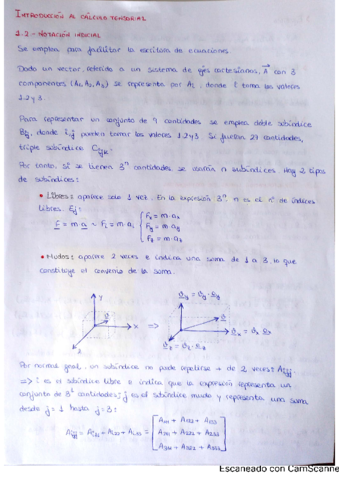 INTRODUCCIÓN AL CÁLCULO TENSORIAL
1.1 - NOTACIÓN INDICIAL
Se emplea para facilitar la escritura de ecuaciones.
Dado un vector, referido a un sistema de ejes cartesianos, A con 3
componentes (A₁, A₂, A₃) se representa por Aᵢ, donde i toma los valores
1, 2 y 3
Para representar un conjunto de 9 cantidades se emplea doble subíndice
Bᵢⱼ, donde i, j pueden tomar los valores 1, 2 y 3. Si fuesen 27 cantidades,
triple subíndice Cᵢⱼₖ.
Por tanto, si se tienen 3ⁿ cantidades se usarán n subíndices. Hay 2 tipos
de subíndices:
• Libres: aparece solo 1 vez. En la expresión 3ⁿ, n es el nº de índices
libres. Ej:
F = m a ~ Fᵢ = m·aᵢ { Fₓ = m·aₓ
Fᵧ = m·aᵧ
F_z = m·a_z
• Mudos: aparece 2 veces e indica una suma de 1 a 3, lo que
constituye el convenio de la suma.
Por norma general, un subíndice no puede repetirse + de 2 veces: Aᵢⱼⱼ
=> i es el subíndice libre e indica que la expresión representa un
conjunto de 3¹ cantidades; j es el subíndice mudo y representa una suma
desde j = 1 hasta j = 3:
Aᵢⱼⱼ = Aᵢ₁₁ + Aᵢ₂₂ + Aᵢ₃₃ = [ A₁₁₁ + A₁₂₂ + A₁₃₃
A₂₁₁ + A₂₂₂ + A₂₃₃
A₃₁₁ + A₃₂₂ + A₃₃₃ ]
Escaneado con CamScanner